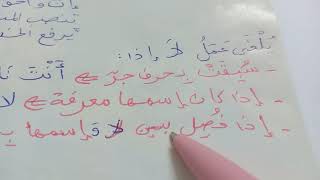 تنصب الم
يرفع المسـ
يُلْغَى عَمَلُ لَا إذا:
- سُبِقَتْ بحرف جرّ ⇐ أَنْتَ تَا
- إذا كان إسمها معرفة ⇐ لا
- إذا فُصِل بين لا وإسمها بـ